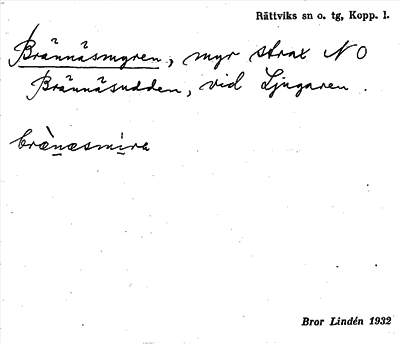 Rättviks sn o. tg, Kopp. l.
Brännäsmyren, myr strax NO
Brännäsudden, vid Ljugaren.
brànæsmira
Bror Lindén 1932